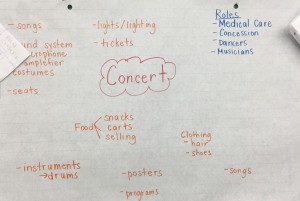 -songs
sound system
microphone
amplefier
costumes
-seats
-lights/lighting
-tickets
Roles
-Medical Care
-Concession
-Dancers
-Musicians
Concert
Food
snacks
carts
selling
Clothing
-hair
-shoes
-instruments
→drums
-posters
-programs
-songs